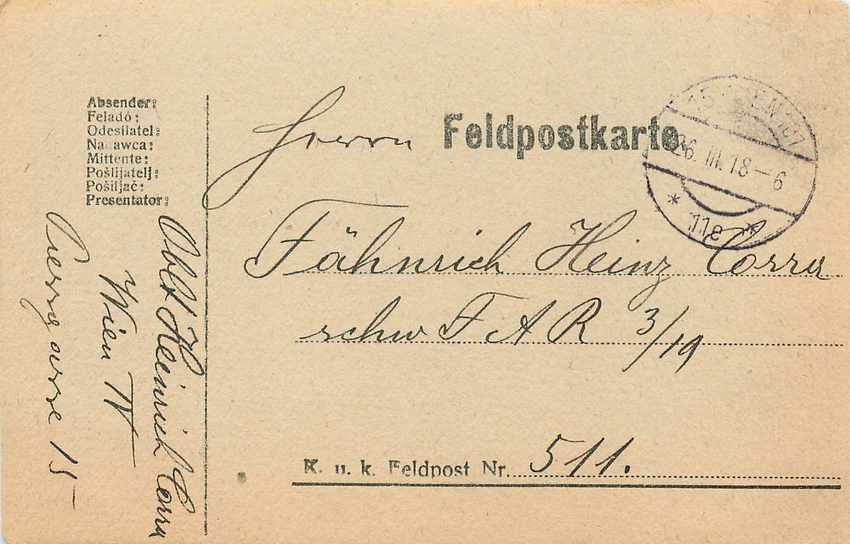 Feldpostkarte
Absender:
Feladó:
Odesílatel:
Nadawca:
Mittente:
Pošlijatelj:
Pošiljač:
Presentator:
Oblt Heinrich Corra
Wien IV
15
Herrn
Fähnrich Heinz Corra
schw F A R 3/19
K. u. k. Feldpost Nr. 511.
26. III. 18 – 6
* 11e *